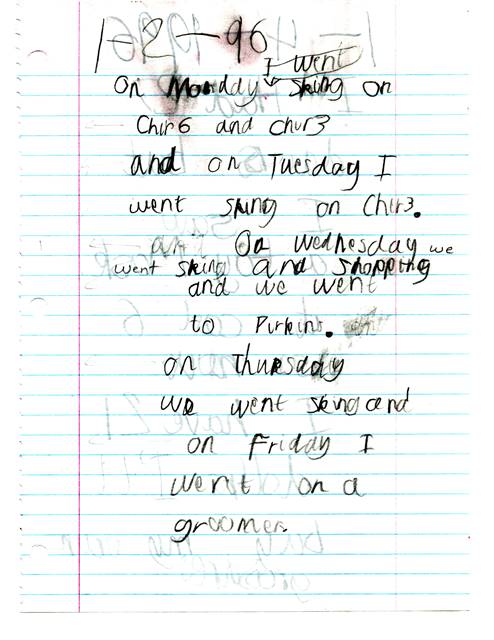 1-2-96
I went
On Monday skiing on
Chir6 and chur3
and on Tuesday I
went skiing on Chir3.
an On wednesday we
went skiing and shopping
and we went
to Purkins.
on Thursday
we went skiing and
on Friday I
went on a
groomer.